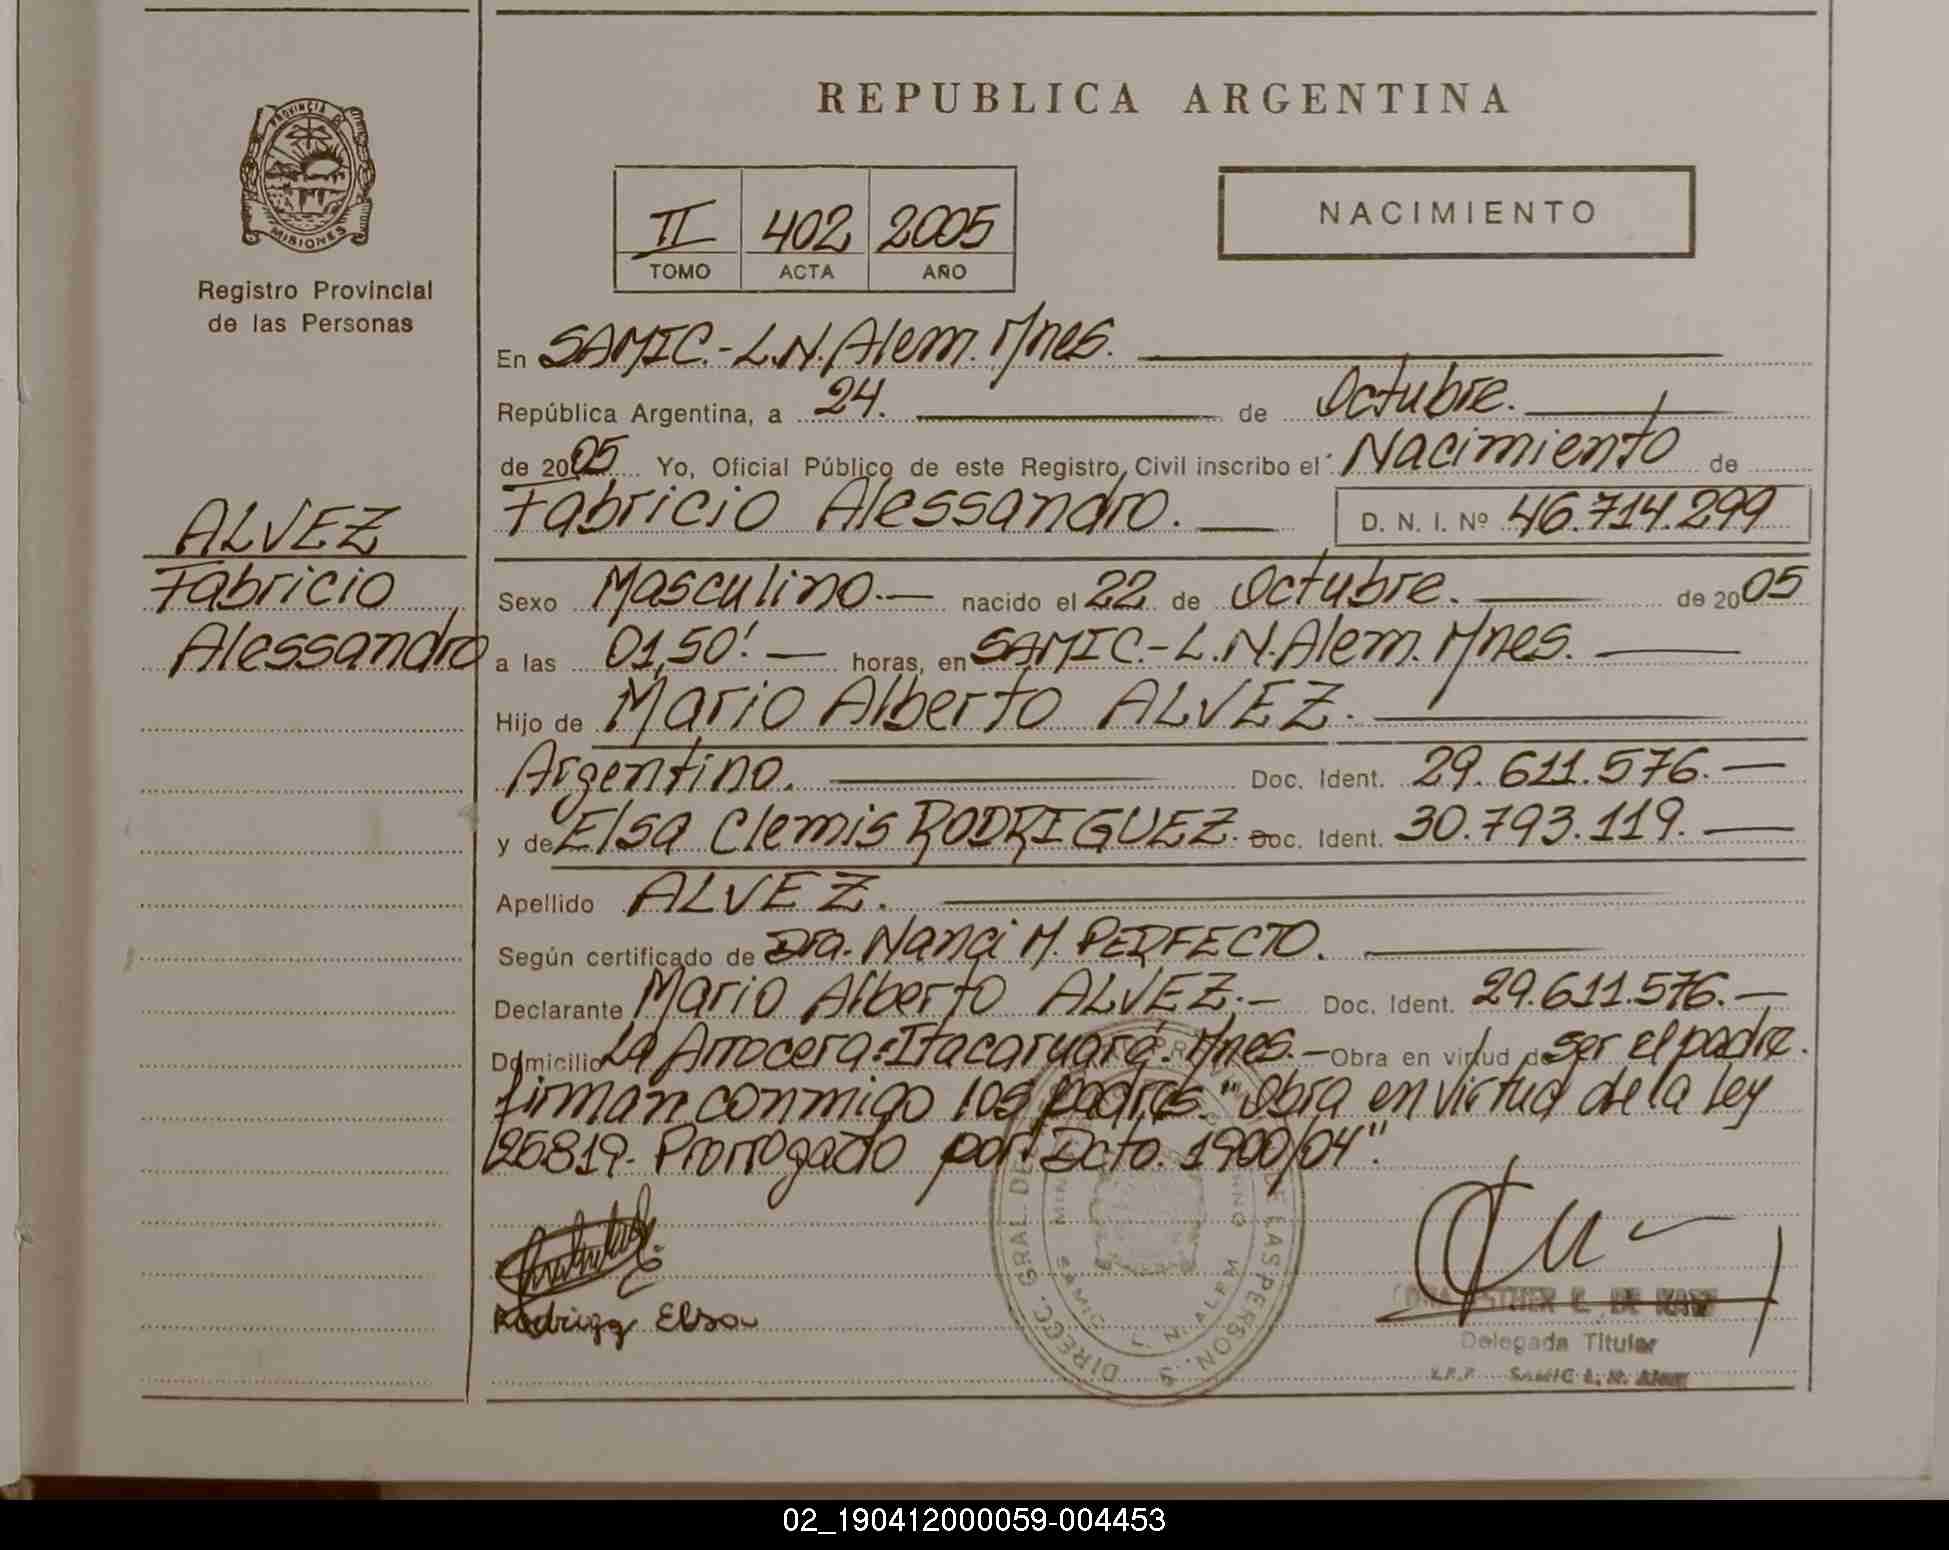 REPUBLICA ARGENTINA
PROVINCIA DE
MISIONES
Registro Provincial
de las Personas
II 402 2005
TOMO ACTA AÑO
NACIMIENTO
En SAMIC.-L.N.Alem. Mnes.
República Argentina, a 24. de Octubre.
de 2005 Yo, Oficial Público de este Registro Civil inscribo el Nacimiento de
Fabricio Alessandro. D. N. I. Nº 46.714.299
ALVEZ
Fabricio
Alessandro
Sexo Masculino.- nacido el 22 de Octubre. de 2005
a las 01,50'. horas, en SAMIC.-L.N.Alem. Mnes.
Hijo de Mario Alberto ALVEZ.
Argentino. Doc. Ident. 29.611.576.-
y de Elsa Clemis RODRIGUEZ. Doc. Ident. 30.793.119.
Apellido ALVEZ.
Según certificado de Dra. Nanci M. PERFECTO.
Declarante Mario Alberto ALVEZ.- Doc. Ident. 29.611.576.-
Domicilio La Arrocera-Itacaruaré. Mnes.- Obra en virtud de ser el padre.
firman conmigo los padres. "Obra en virtud de la Ley
25819- Prorrogado por Dcto. 1900/04".
Elsa
DIRECC. GRAL. DE LAS PERSON.
SAMIC L. N. ALEM
DE
Delegada Titular
SAMIC L. N.
02_190412000059-004453